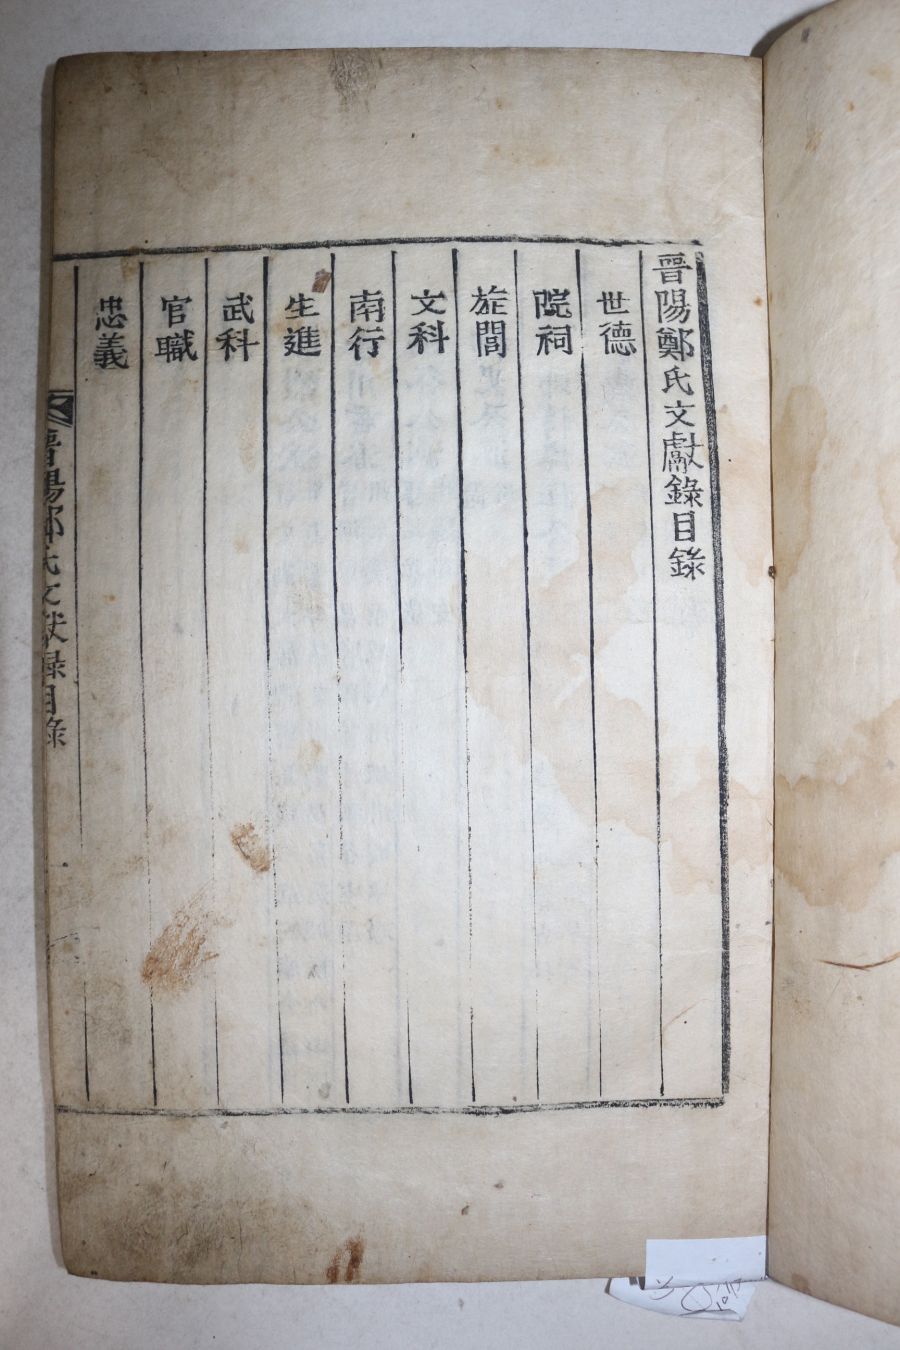 晉陽鄭氏文獻錄目錄
世德
院祠
旌閭
文科
南行
生進
武科
官職
忠義
晉陽鄭氏文獻錄目錄